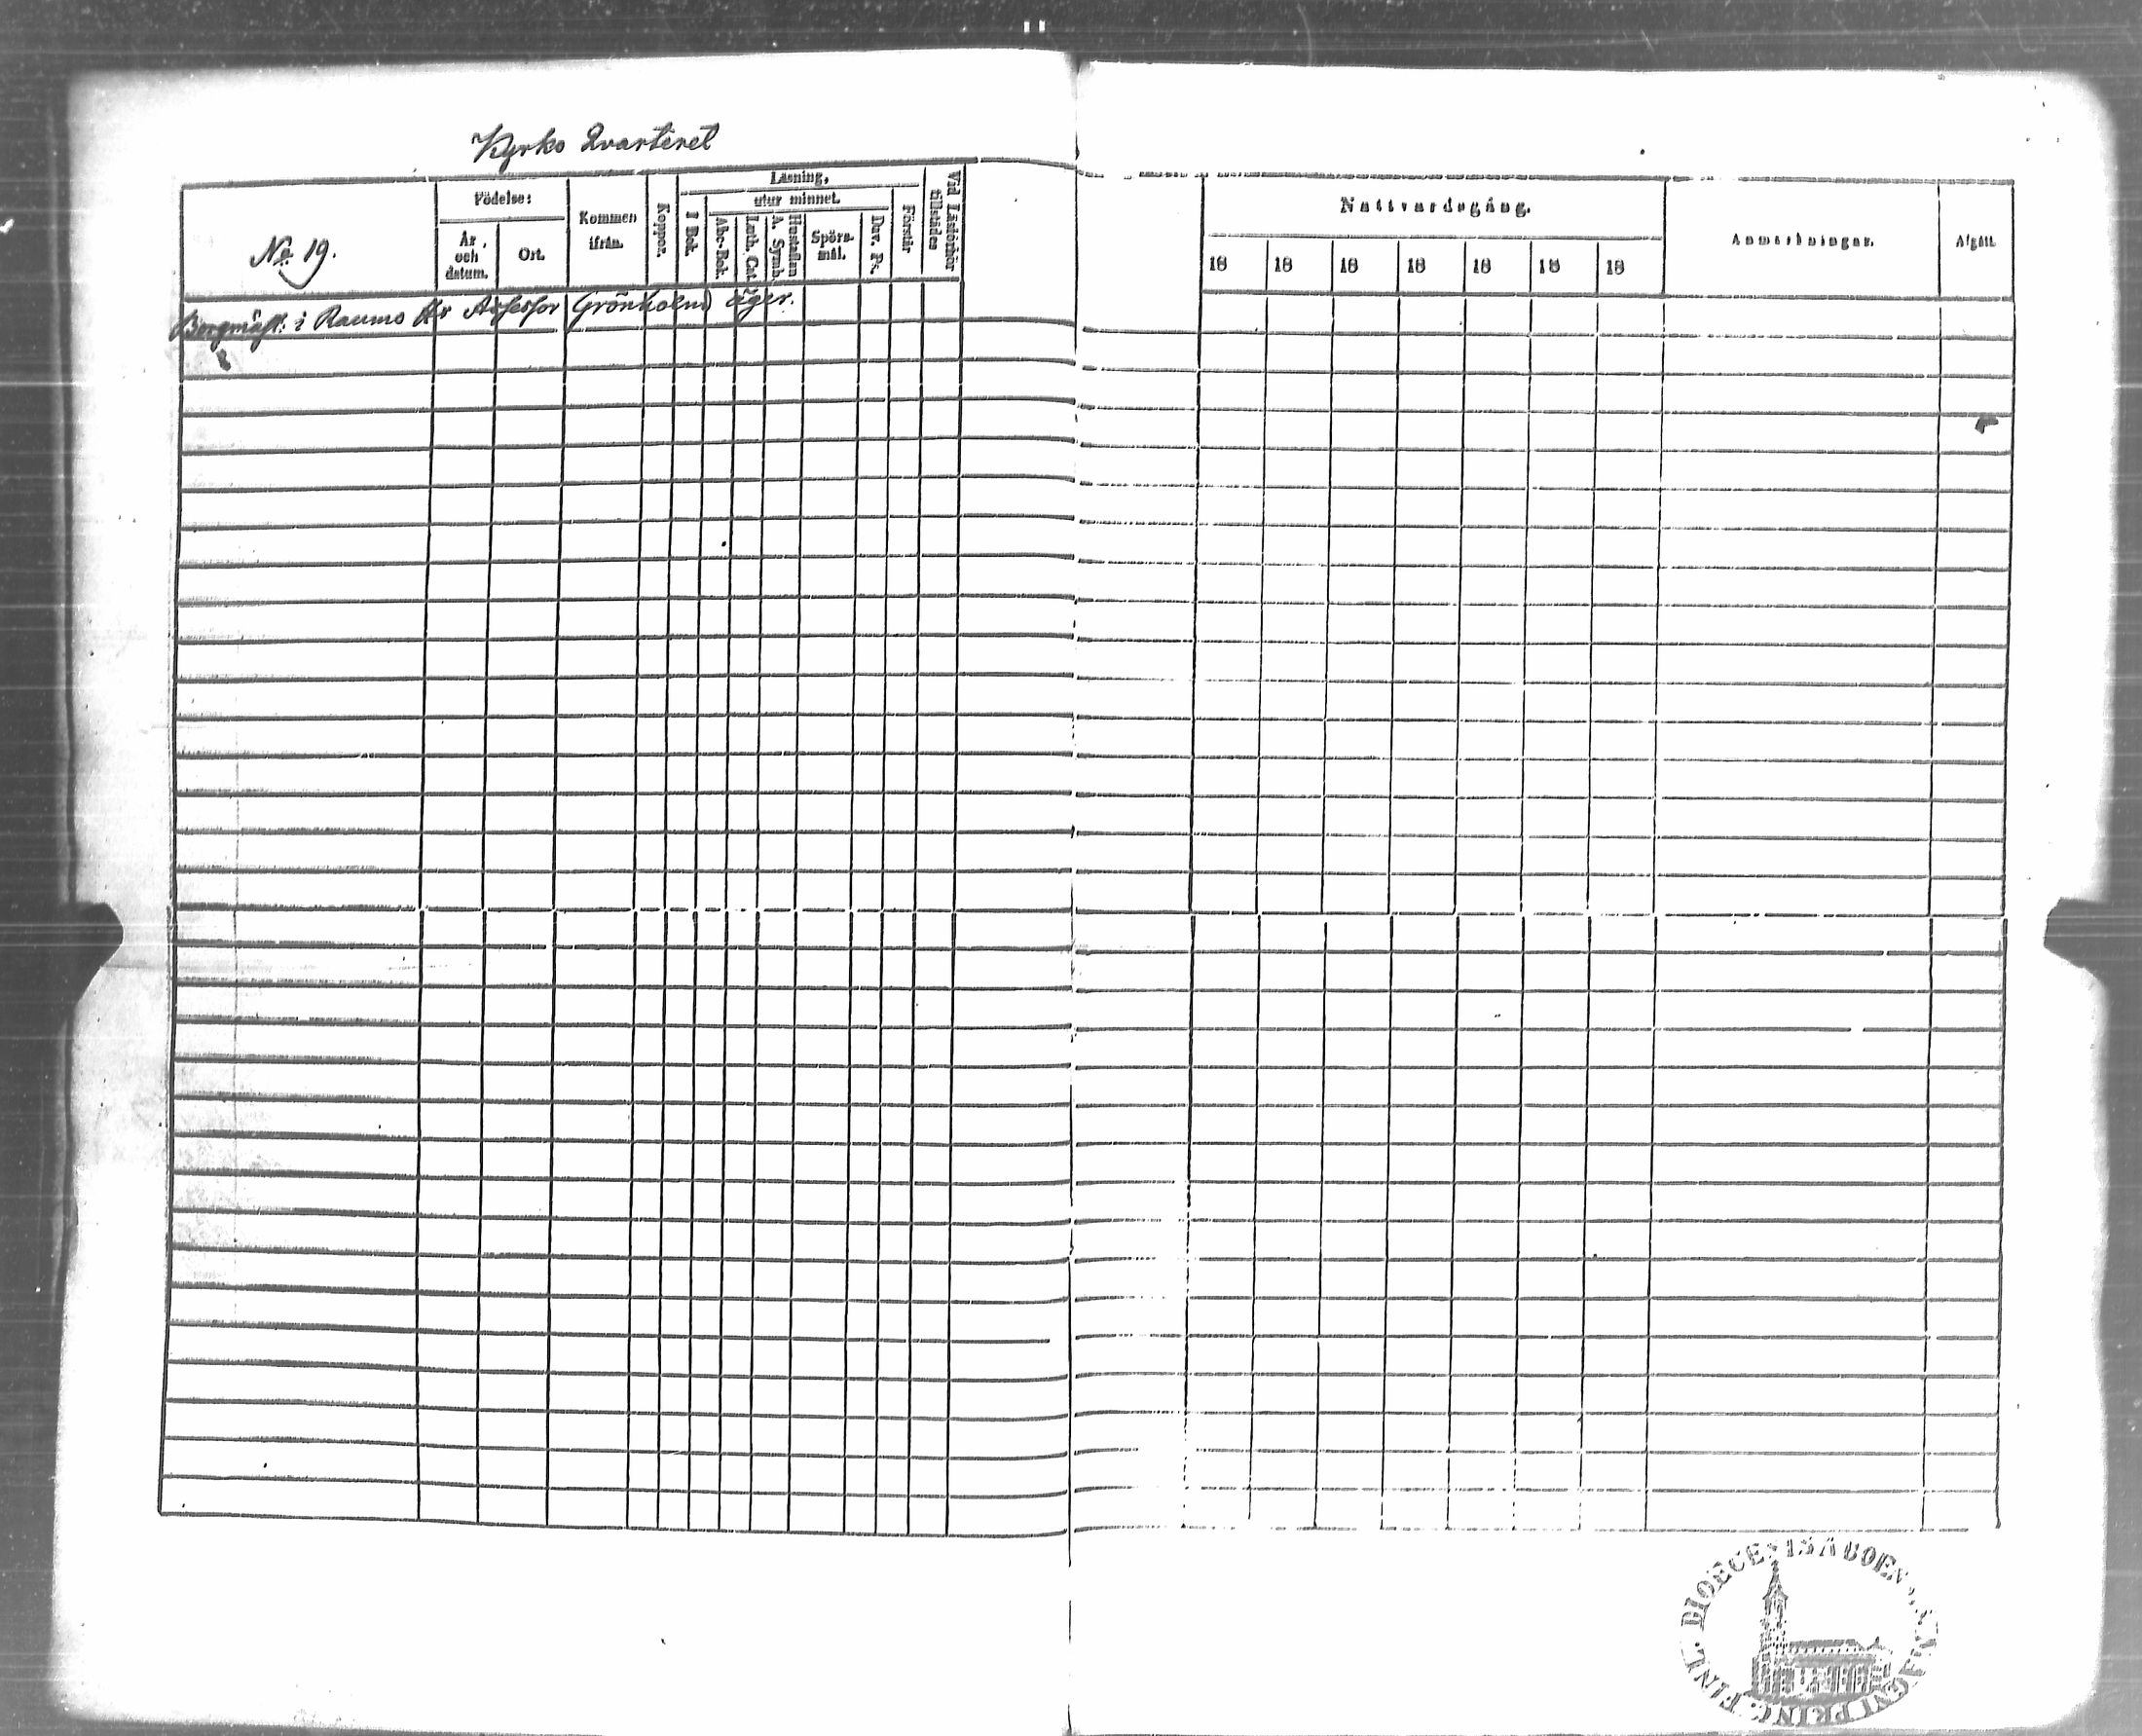 Kyrko Qvarteret
No 19.
Födelse:
År och datum.
Ort.
Kommen ifrån.
Koppor.
Läsning.
I Bok.
utur minnet.
Abc-Bok.
Luth. Cat.
Hustaflan A. Symb.
Spörsmål.
Dav. Ps.
Förstår
Vid Läsförhör tillstädes
Nattvardsgång.
18 18 18 18 18 18 18
Anmärkningar.
Afgått.
Borgmäst. i Raumo Hr Assessor Grönholm äger.
FINL. DIOECESIS ABOENSIS